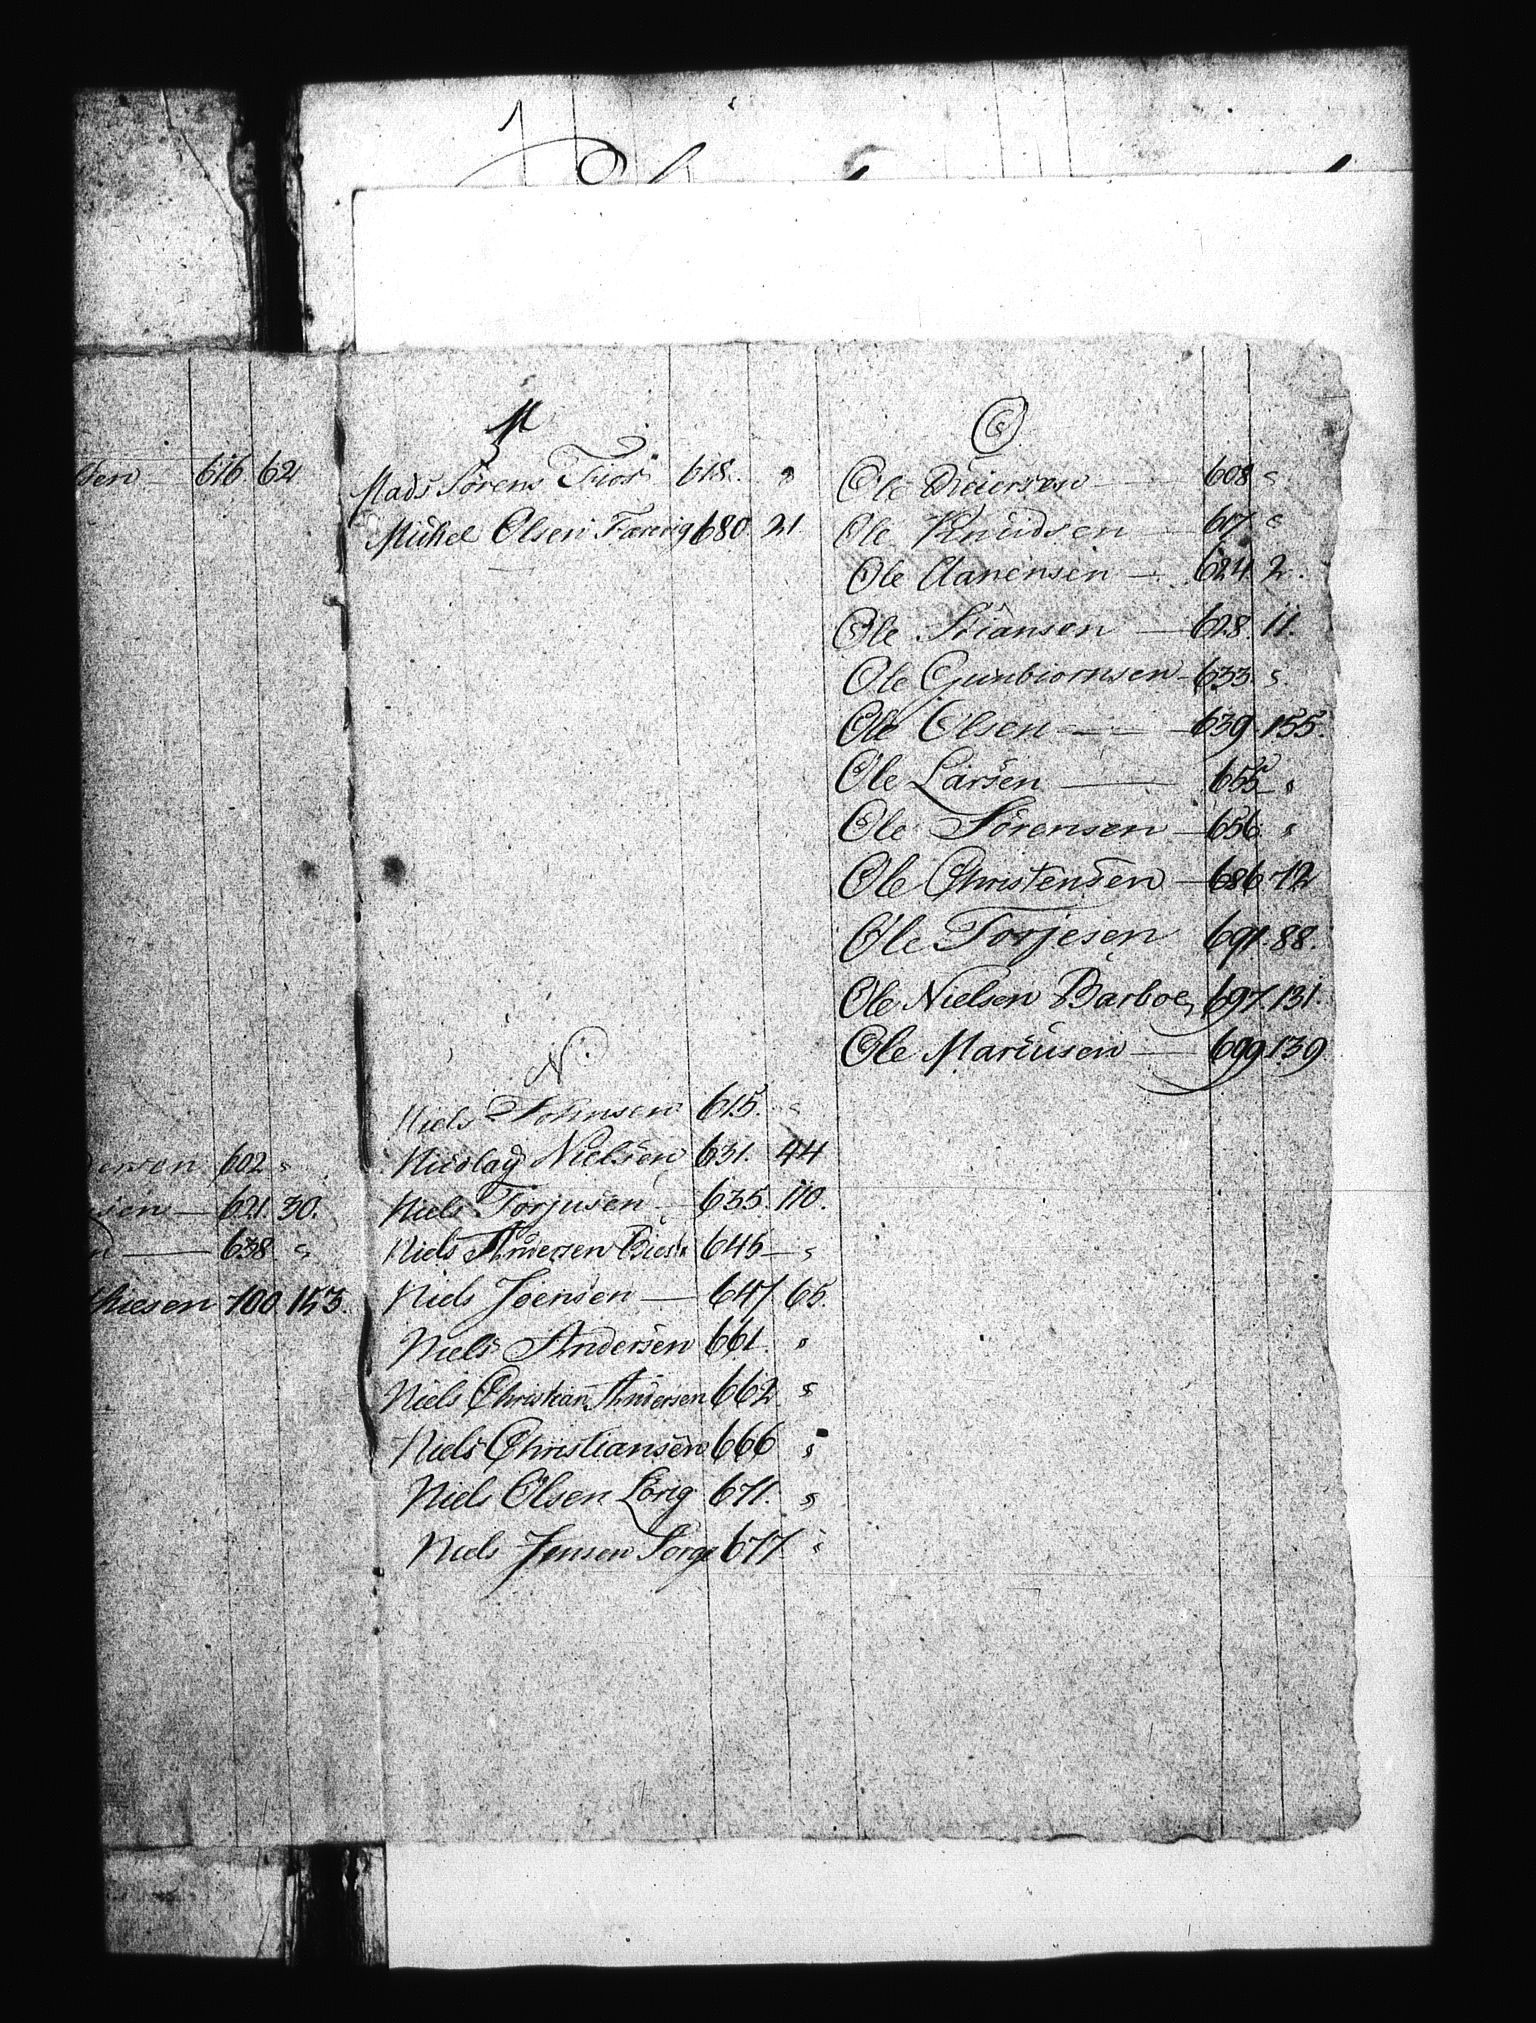 sen — 616. 62
602 "
sen — 621. 30.
— 638 "
thiesen 700. 153.
M
Mads Sørens Fior 618. "
Michel Olsen Færevig 680. 21.
N.
Niels Johnsen 615. "
Nicolay Nielsen 631. 44
Niels Torjusen — 635. 110.
Niels Andersen 646 — "
Niels Joensen — 647 65.
Niels Andersen 661. "
Niels Christian Andersen 662. "
Niels Christiansen 666 "
Niels Olsen Lørig 671. "
Niels Jensen Sorge 677. "
O
Ole Reiersen — 608 "
Ole Knudsen — 617. "
Ole Aanensen — 624. 2.
Ole Stiansen — 628. 11.
Ole Gunbiornsen — 633. "
Ole Olsen — 639. 155.
Ole Larsen — 655 "
Ole Sørensen — 656. "
Ole Christensen — 686. 72
Ole Torjesen 691. 88.
Ole Nielsen Barboe, 697. 131.
Ole Mariusen — 699. 139